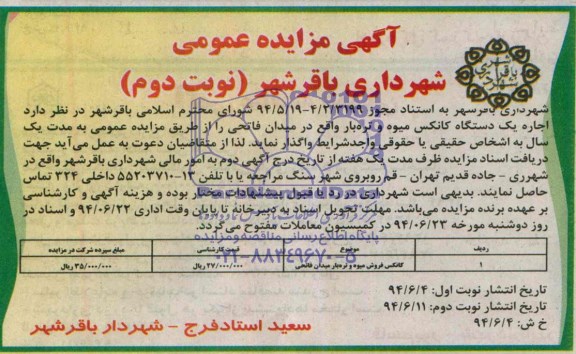 آگهی مزایده عمومی
شهرداری باقرشهر (نوبت دوم)
شهرداری باقرشهر به استناد مجوز ۴/۲/۳۱۹۹-۹۴/۵/۱۹ شورای محترم اسلامی باقرشهر در نظر دارد
اجاره یک دستگاه کانکس میوه و تره‌بار واقع در میدان فاتحی را از طریق مزایده عمومی به مدت یک
سال به اشخاص حقیقی یا حقوقی واجدشرایط واگذار نماید. لذا از متقاضیان دعوت به عمل می‌آید جهت
دریافت اسناد مزایده ظرف مدت یک هفته از تاریخ درج آگهی دوم به امور مالی شهرداری باقرشهر واقع در
شهرری - جاده قدیم تهران - قم روبروی شهر سنگ مراجعه یا با تلفن ۱۳-۵۵۲۰۳۷۱۰ داخلی ۳۲۴ تماس
حاصل نمایند. بدیهی است شهرداری در رد یا قبول پیشنهادات مختار بوده و هزینه آگهی و کارشناسی
بر عهده برنده مزایده می‌باشد. مهلت تحویل اسناد به دبیرخانه تا پایان وقت اداری ۹۴/۰۶/۲۲ و اسناد در
روز دوشنبه مورخه ۹۴/۰۶/۲۳ در کمیسیون معاملات مفتوح می‌گردد.
پایگاه اطلاع رسانی مناقصه و مزایده
۰۲۱-۸۸۳۴۹۶۷۰-۵
ردیف موضوع قیمت کارشناسی مبلغ سپرده شرکت در مزایده
۱ کانکس فروش میوه و تره‌بار میدان فاتحی ۲۷/۰۰۰/۰۰۰ ریال ۳۵/۰۰۰/۰۰۰ ریال
تاریخ انتشار نوبت اول: ۹۴/۶/۴
تاریخ انتشار نوبت دوم: ۹۴/۶/۱۱
خ ش: ۹۴/۶/۴
سعید استادفرج - شهردار باقرشهر